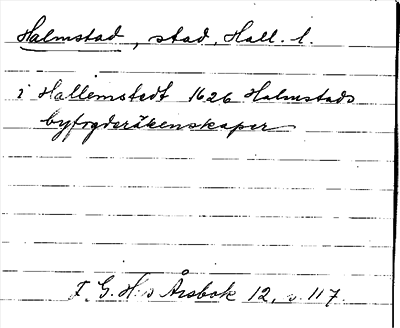 Halmstad, stad, Hall. l.
i Hallemstedt 1626 Halmstads
byfogderäkenskaper
F. G. H:s Årsbok 12, s. 117.